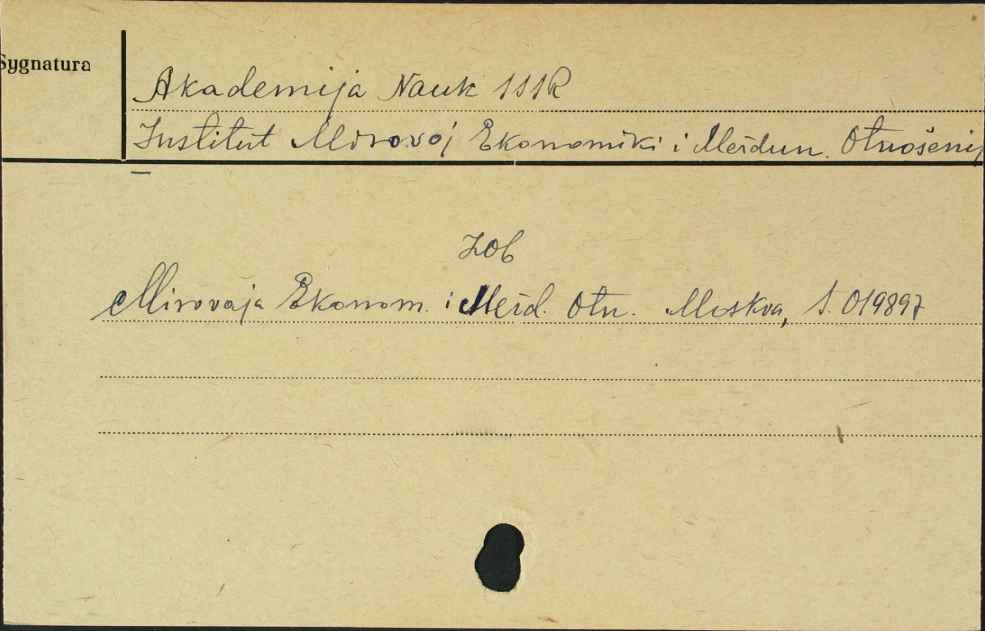 Sygnatura
Akademija Nauk SSSR
Institut Mirovoj Ekonomiki i Meždun. Otnošenij
Zob
Mirovaja Ekonom. i Mežd. Otn. Moskva, S. 019897